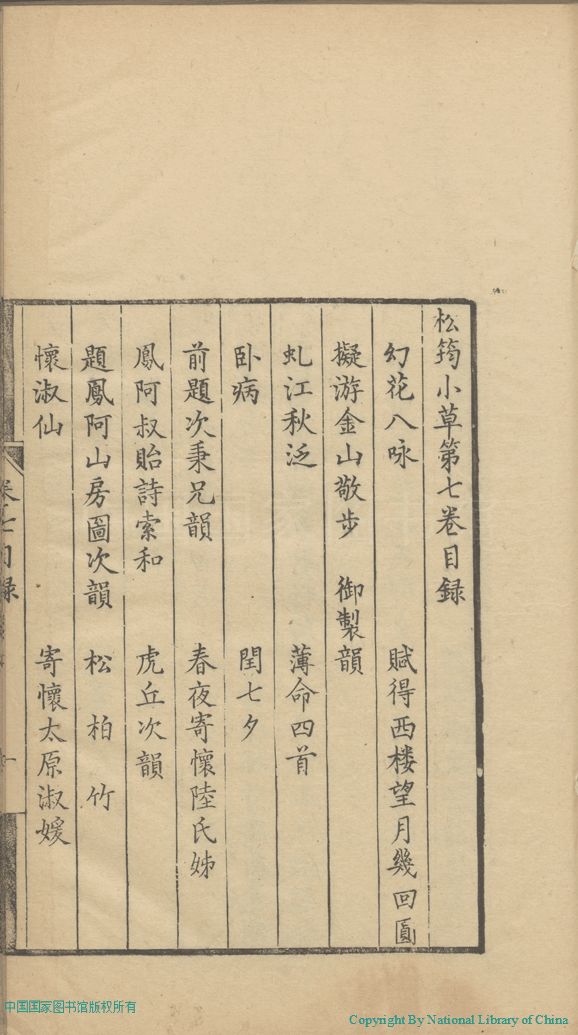 松筠小草第七卷目錄
幻花八咏　賦得西楼望月幾回圓
擬游金山敬步　御製韻
虬江秋泛　薄命四首
卧病　閏七夕
前題次秉兄韻　春夜寄懷陸氏姊
鳳阿叔貽詩索和　虎丘次韻
題鳳阿山房圖次韻　松　柏　竹
懷淑仙　寄懷太原淑媛
卷七目録
一
中国国家图书馆版权所有
Copyright By National Library of China